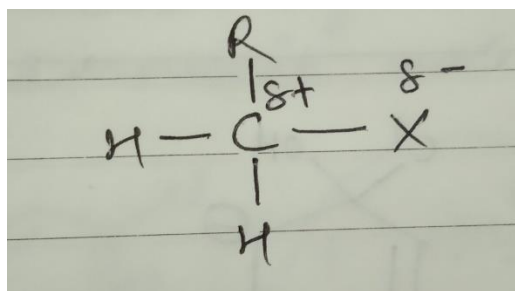 R
δ+ δ-
H - C - X
H